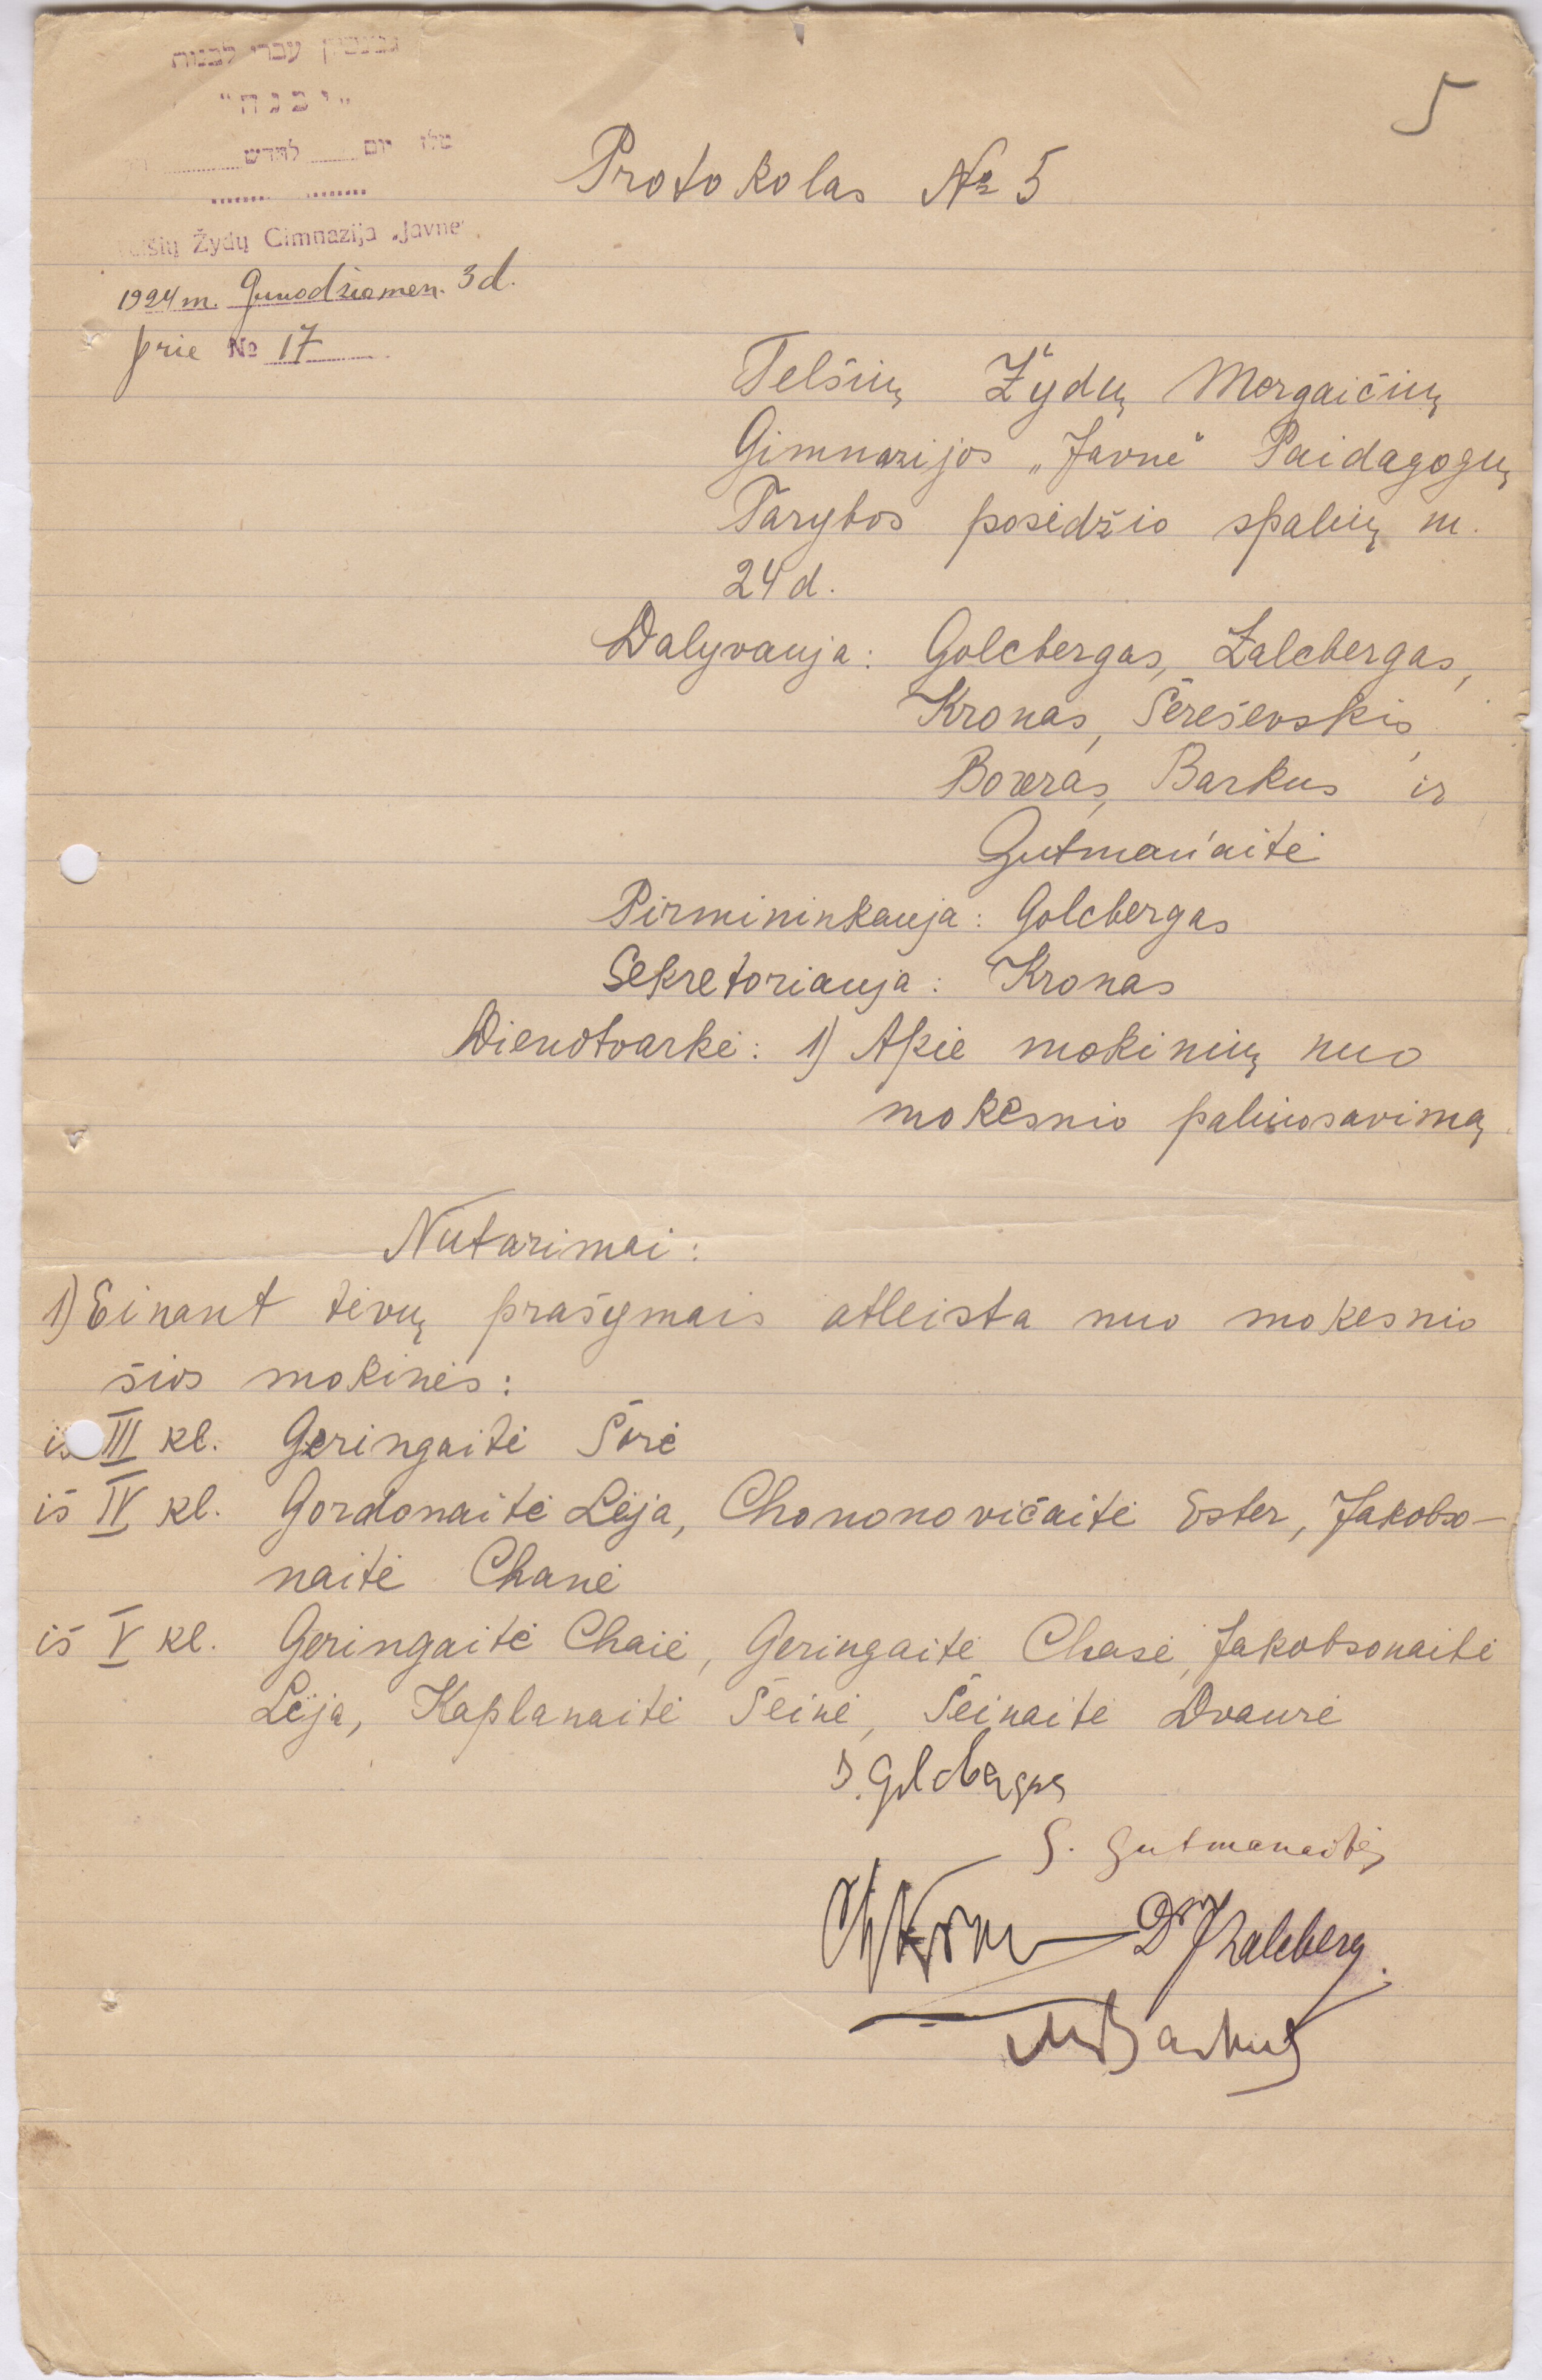 עברי לבנות
"יבנה"
טלז יום לחדש
5
Protokolas № 5
Žydų Gimnazija „Javne"
1924 m. Gruodžio men. 3 d.
prie № 17
Telšių Žydų Mergaičių
Gimnazijos „Javne" Paidagogų
Tarybos posėdžio spalių m.
24 d.
Dalyvauja: Golcbergas, Zalcbergas,
Kronas, Šereševskis,
Boxeras, Barkus ir
Gutmanaitė
Pirmininkauja: Golcbergas
Sekretoriauja: Kronas
Dienotvarkė: 1) Apie mokinių nuo
mokesnio paliuosavimą.
Nutarimai:
1) Einant tėvų prašymais atleista nuo mokesnio
šios mokinės:
iš III kl. Geringaitė Šorė
iš IV kl. Gordonaitė Lėja, Chononovičaitė Ester, Jakobso-
naitė Chanė
iš V kl. Geringaitė Chaiė, Geringaitė Chasė, Jakobsonaitė
Lėja, Kaplanaitė Šeinė, Šeinaitė Dvaurė
Golcbergas
S. Gutmanaitė
Dr Zalcberg.
M Barkus